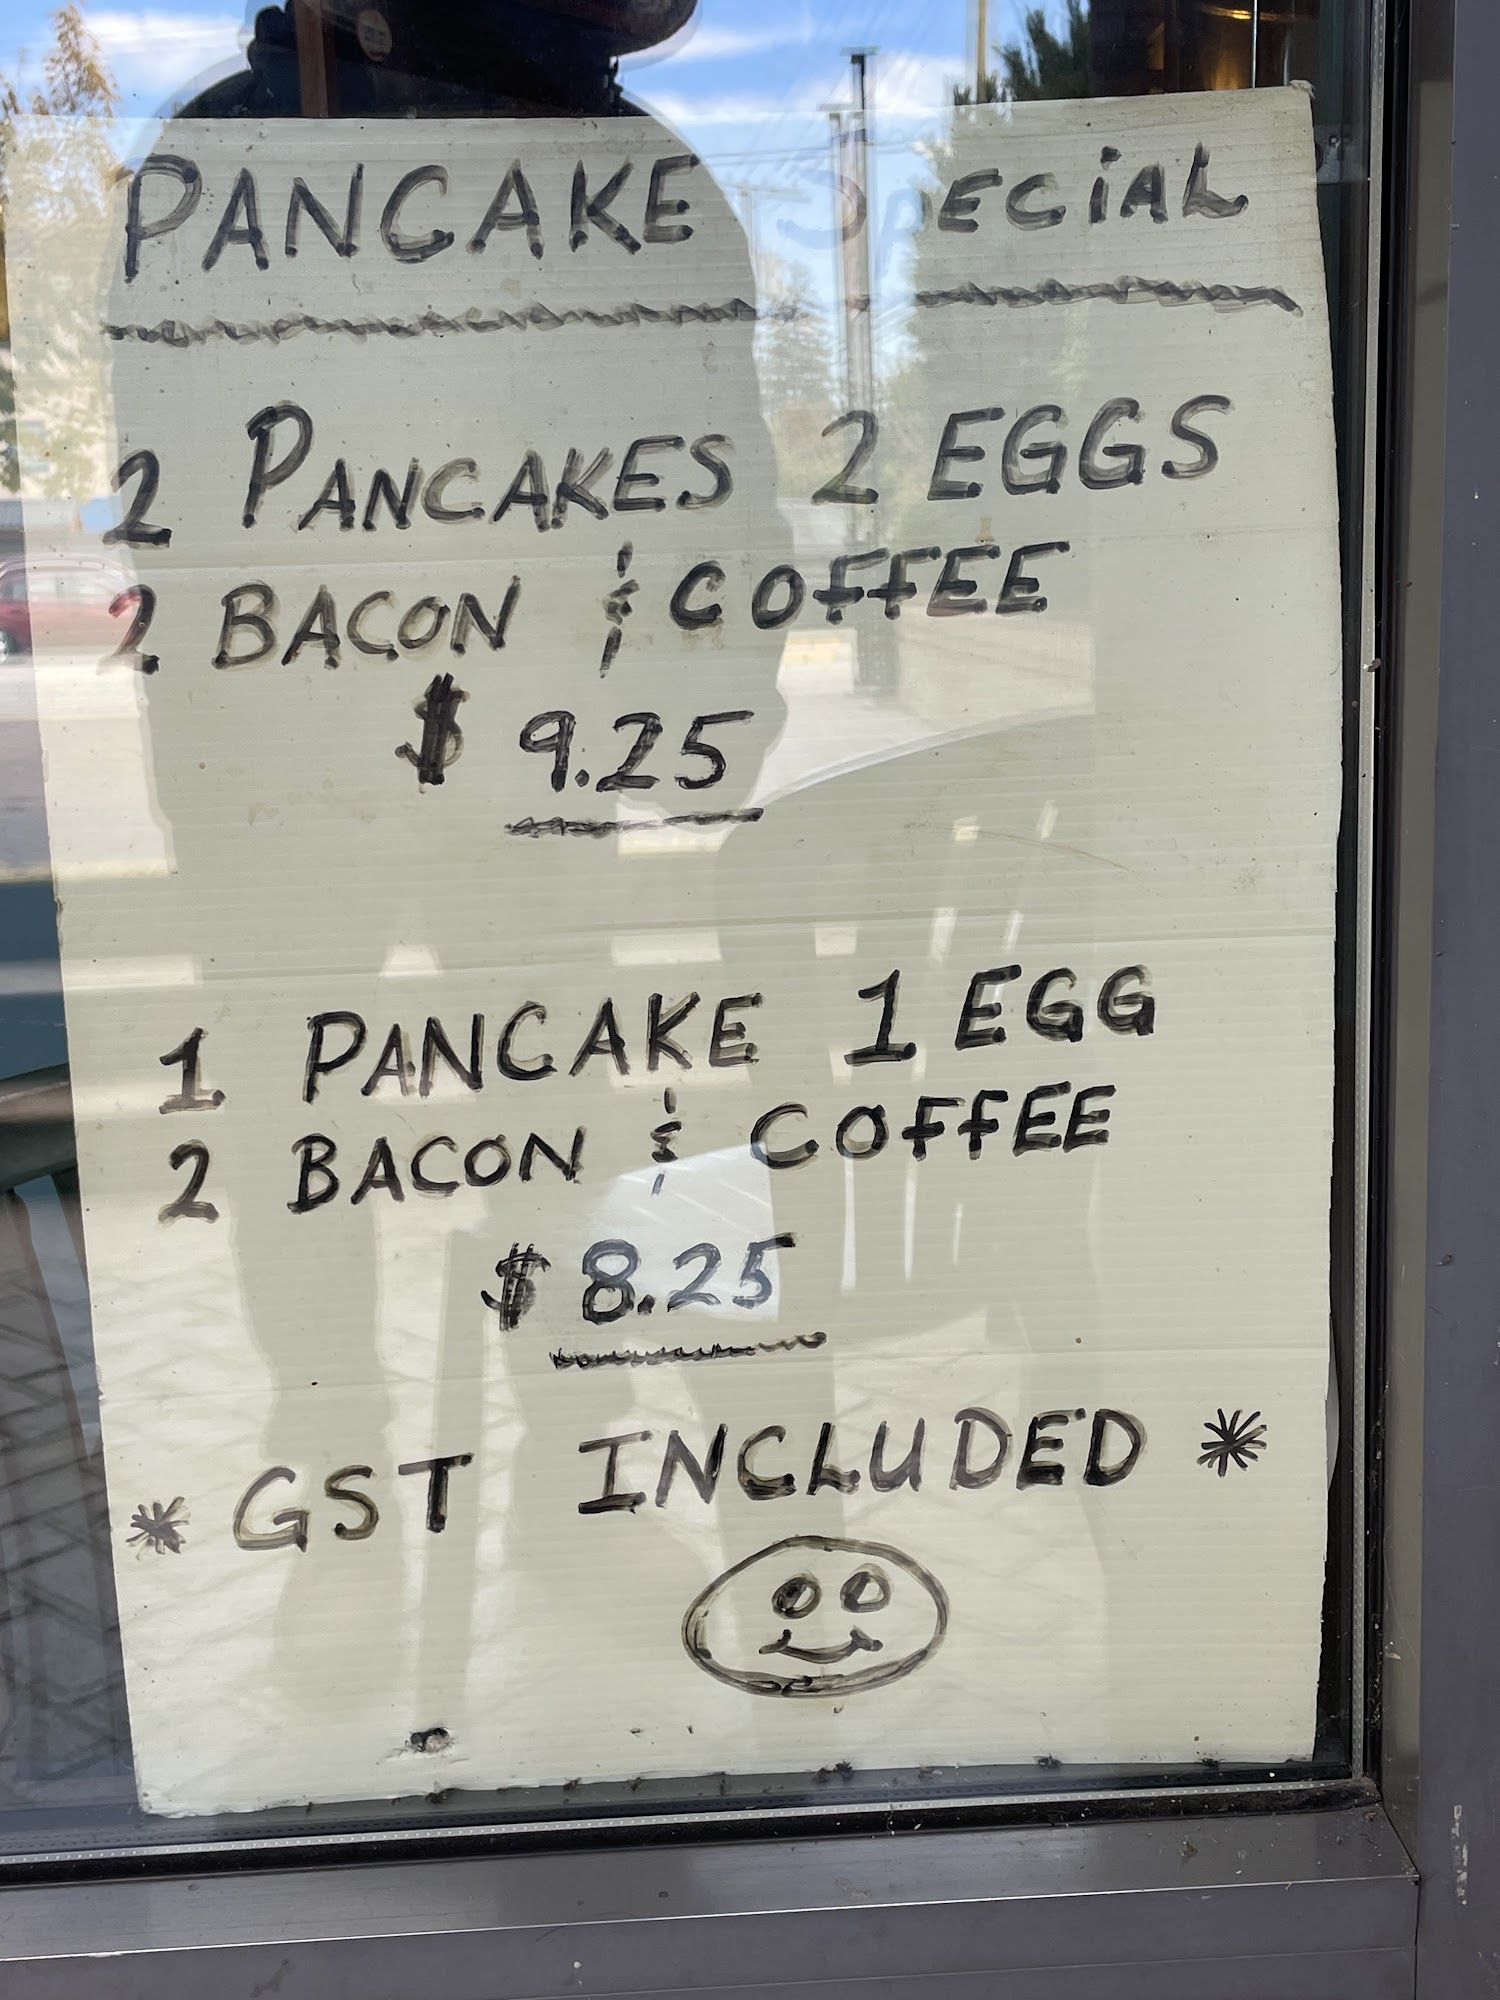 PANCAKE SPECIAL
2 PANCAKES 2 EGGS
2 BACON & COFFEE
$ 9.25
1 PANCAKE 1 EGG
2 BACON & COFFEE
$ 8.25
* GST INCLUDED *